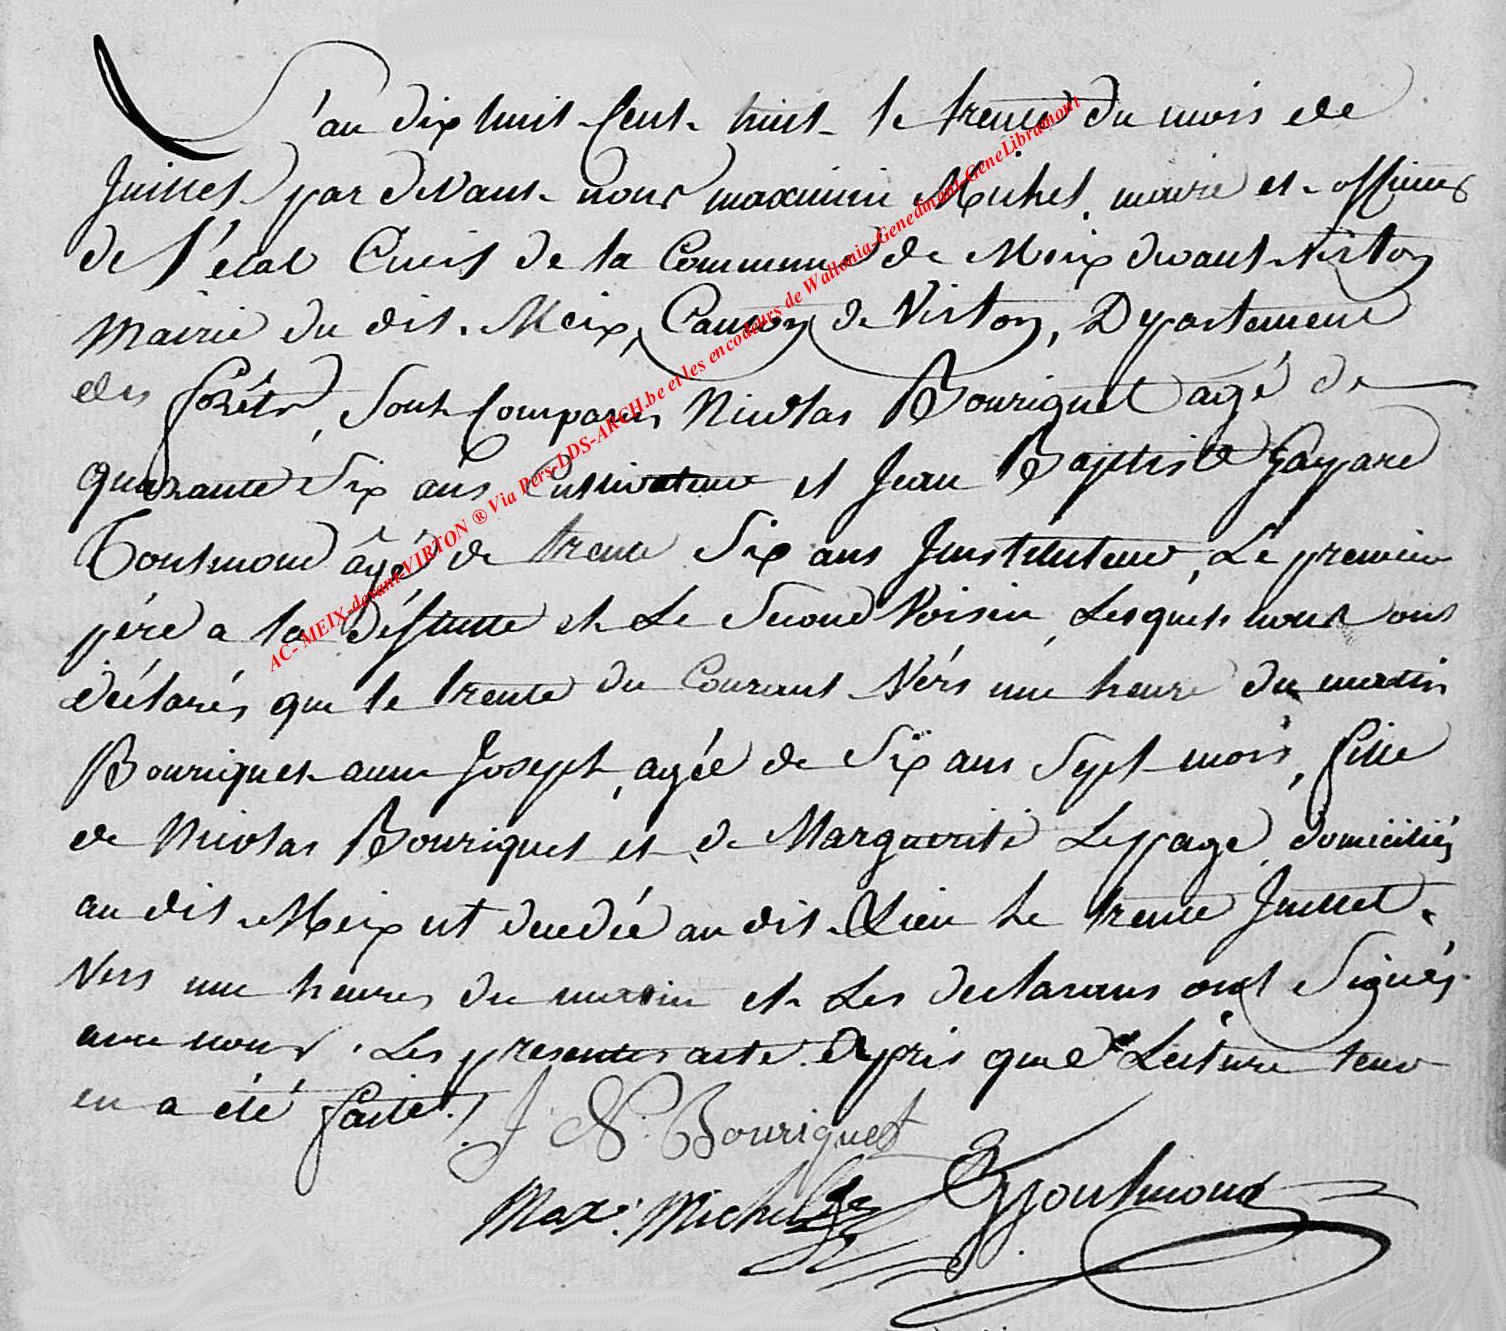 L'an dix huit Cent huit le trente du mois de
Juillet par devant nous maximin Michel, maire et officier
de l'état Civil de la Commune de Meix devant virton
Mairie du dit Meix, Canton de Virton, Département
des forêts, Sont Comparus Nicolas Bouriquet agé de
quarante Six ans Cultivateur et Jean Baptiste Gaspard
âgé de trente Six ans Instituteur, Le premier
père a la défunte et Le Second Voisin, Lesquels nous ont
déclarés que le trente du Courant Vérs une heure du matin
Bouriquet anne Joseph, agée de Six ans Sept mois, fille
de Nicolas Bouriquet et de Marguerite Lepage domiciliés
au dit Meix est decedée au dit Lieu le trente Juillet
Vers une heures du matin et Les declarans ont Signés
avec nous. Les presentes acte Apris que Lecture leur
en a été faite./. J. N. Bouriquet
Max: Michel
AC- MEIX-devant-VIRTON ® Via Pers-LDS-ARCH.be et les encodeurs de Wallonia-Genedinant-GeneLibramont